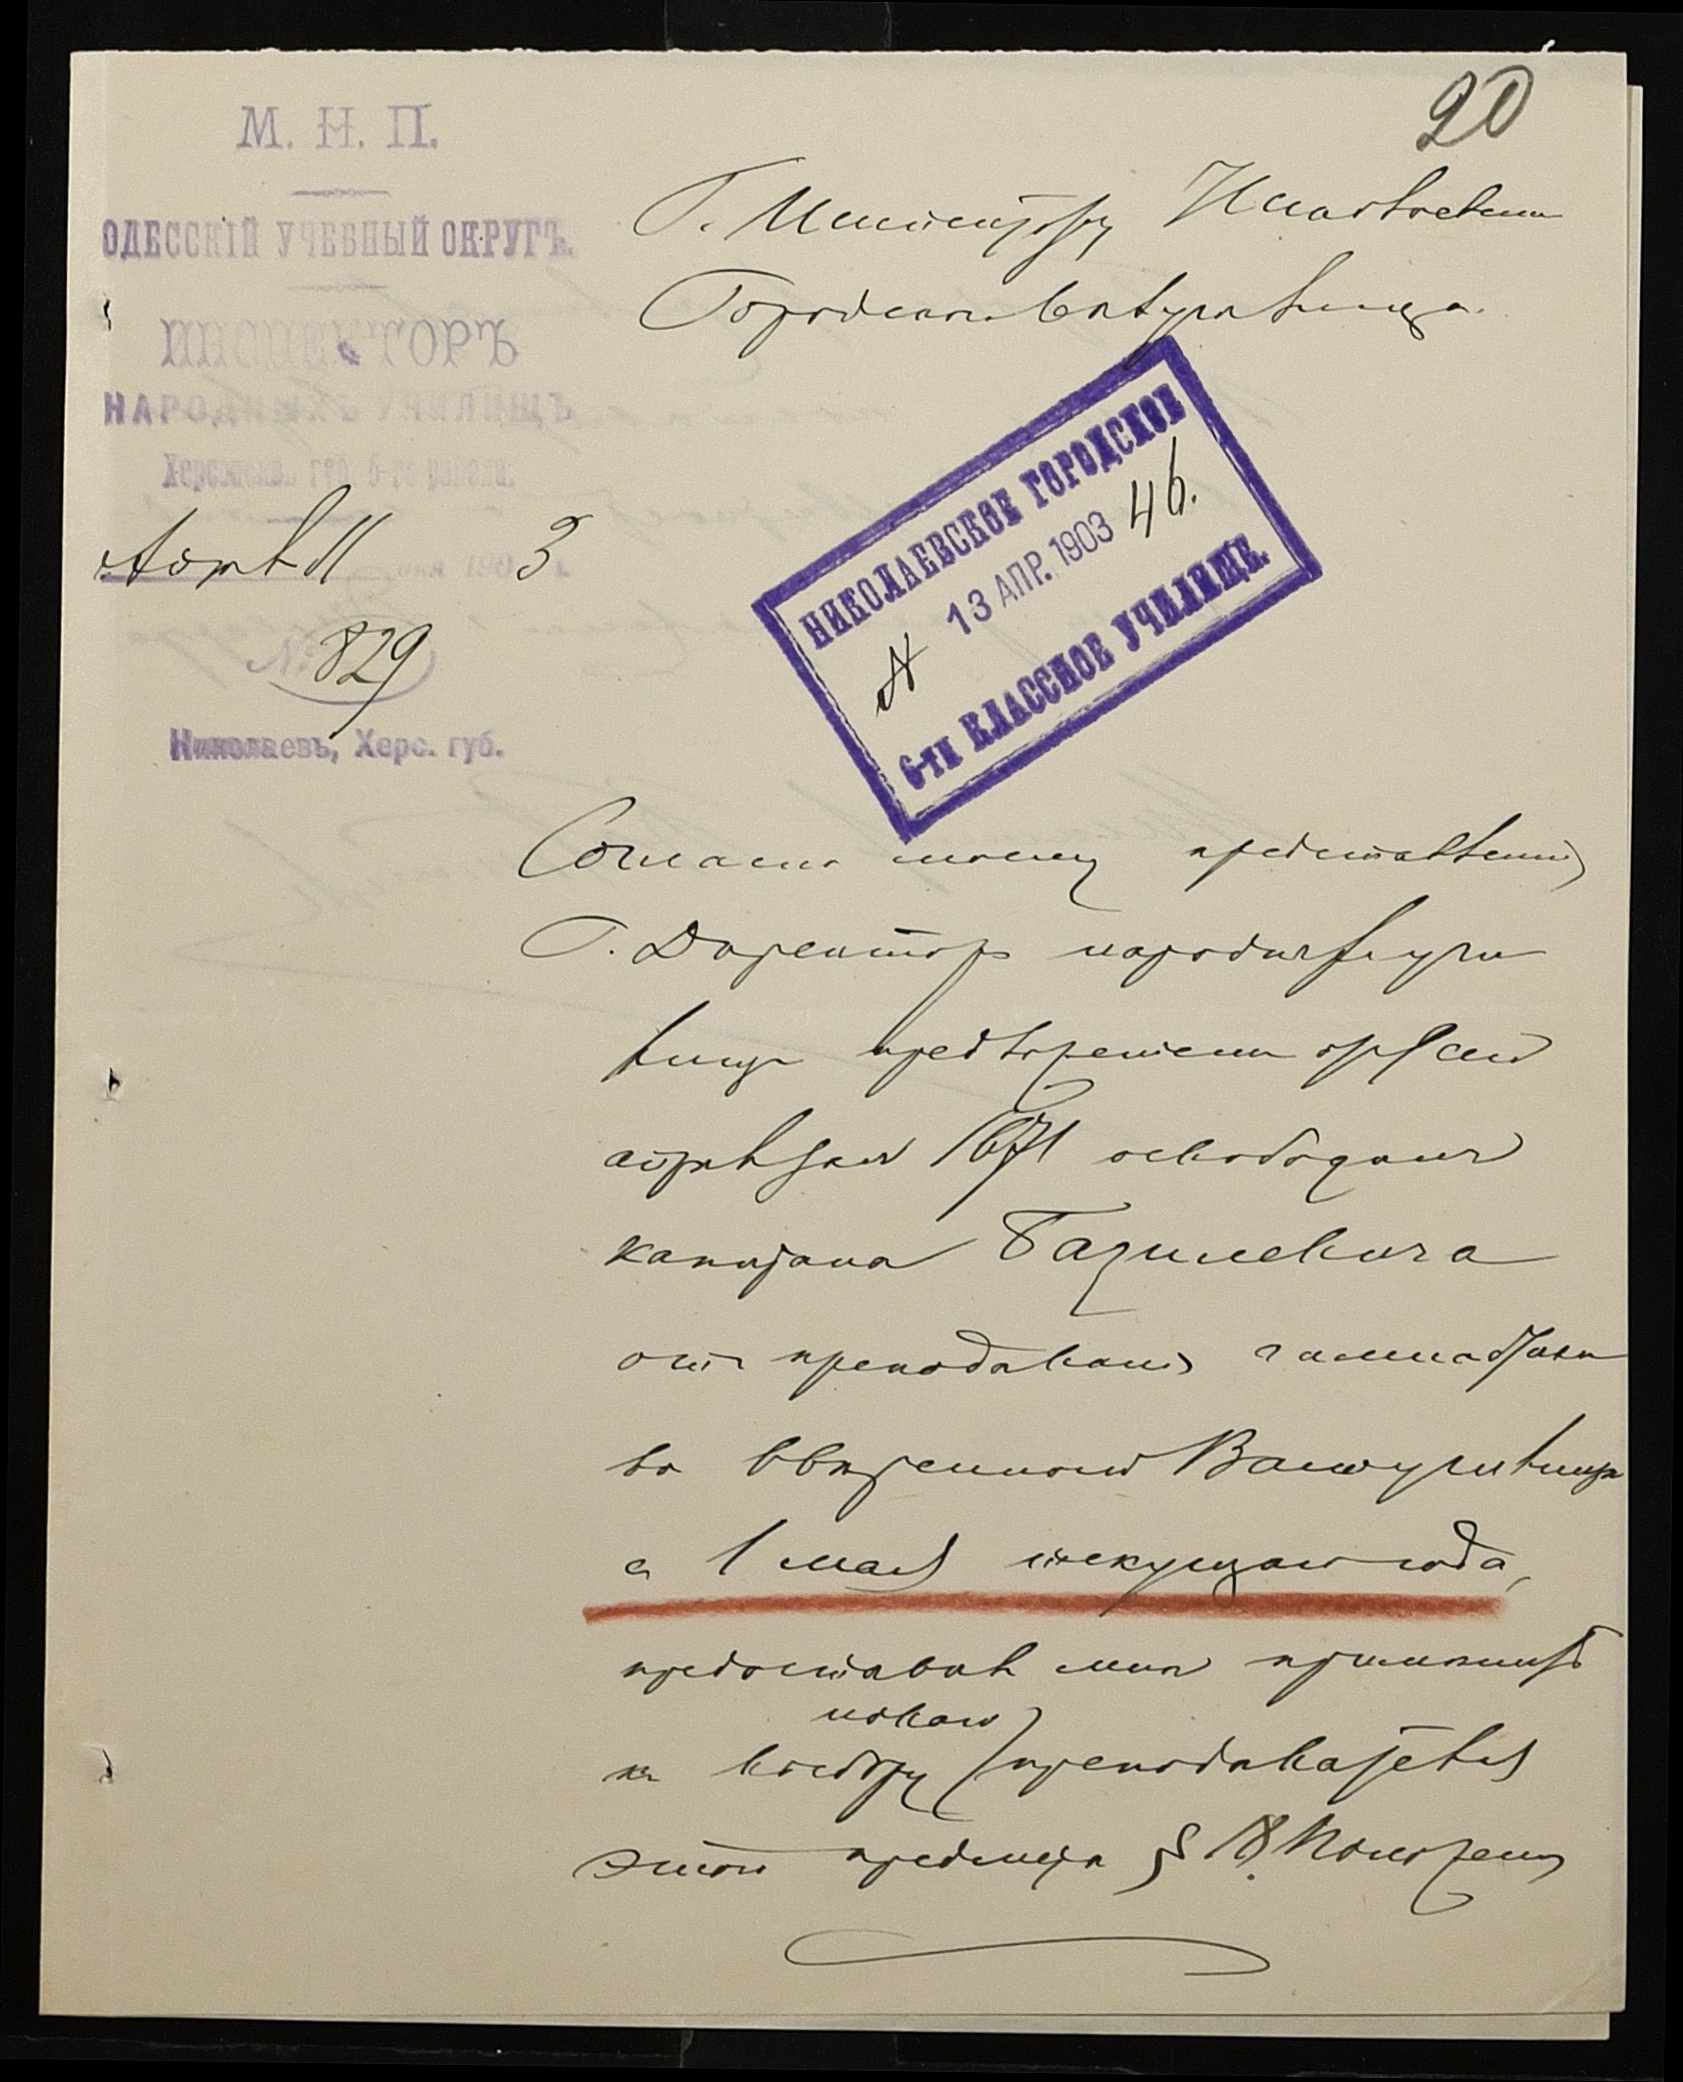 20
М. Н. П.
ОДЕССКІЙ УЧЕБНЫЙ ОКРУГЪ.
ИНСПЕКТОРЪ
НАРОДНЫХЪ УЧИЛИЩЪ
Херсонск. губ. 6-го района.
Апрѣля 11 190 3
№ 829
Николаевъ, Херс. губ.
Г. Инспектору Николаевскаго
Городского училища.
НИКОЛАЕВСКОЕ ГОРОДСКОЕ
13 АПР. 1903 46.
6-ТИ КЛАССНОЕ УЧИЛИЩЕ.
Согласно моему представленію
Г. Директоръ народныхъ учи
лищъ
апрѣля 1671 освободилъ
капитана Базилевича
отъ преподаванія гимнастики
во ввѣренномъ Вамъ училищѣ
съ 1 мая текущаго года,
предоставивъ мнѣ
новаго
къ выбору преподавателя
этого предмета § 18